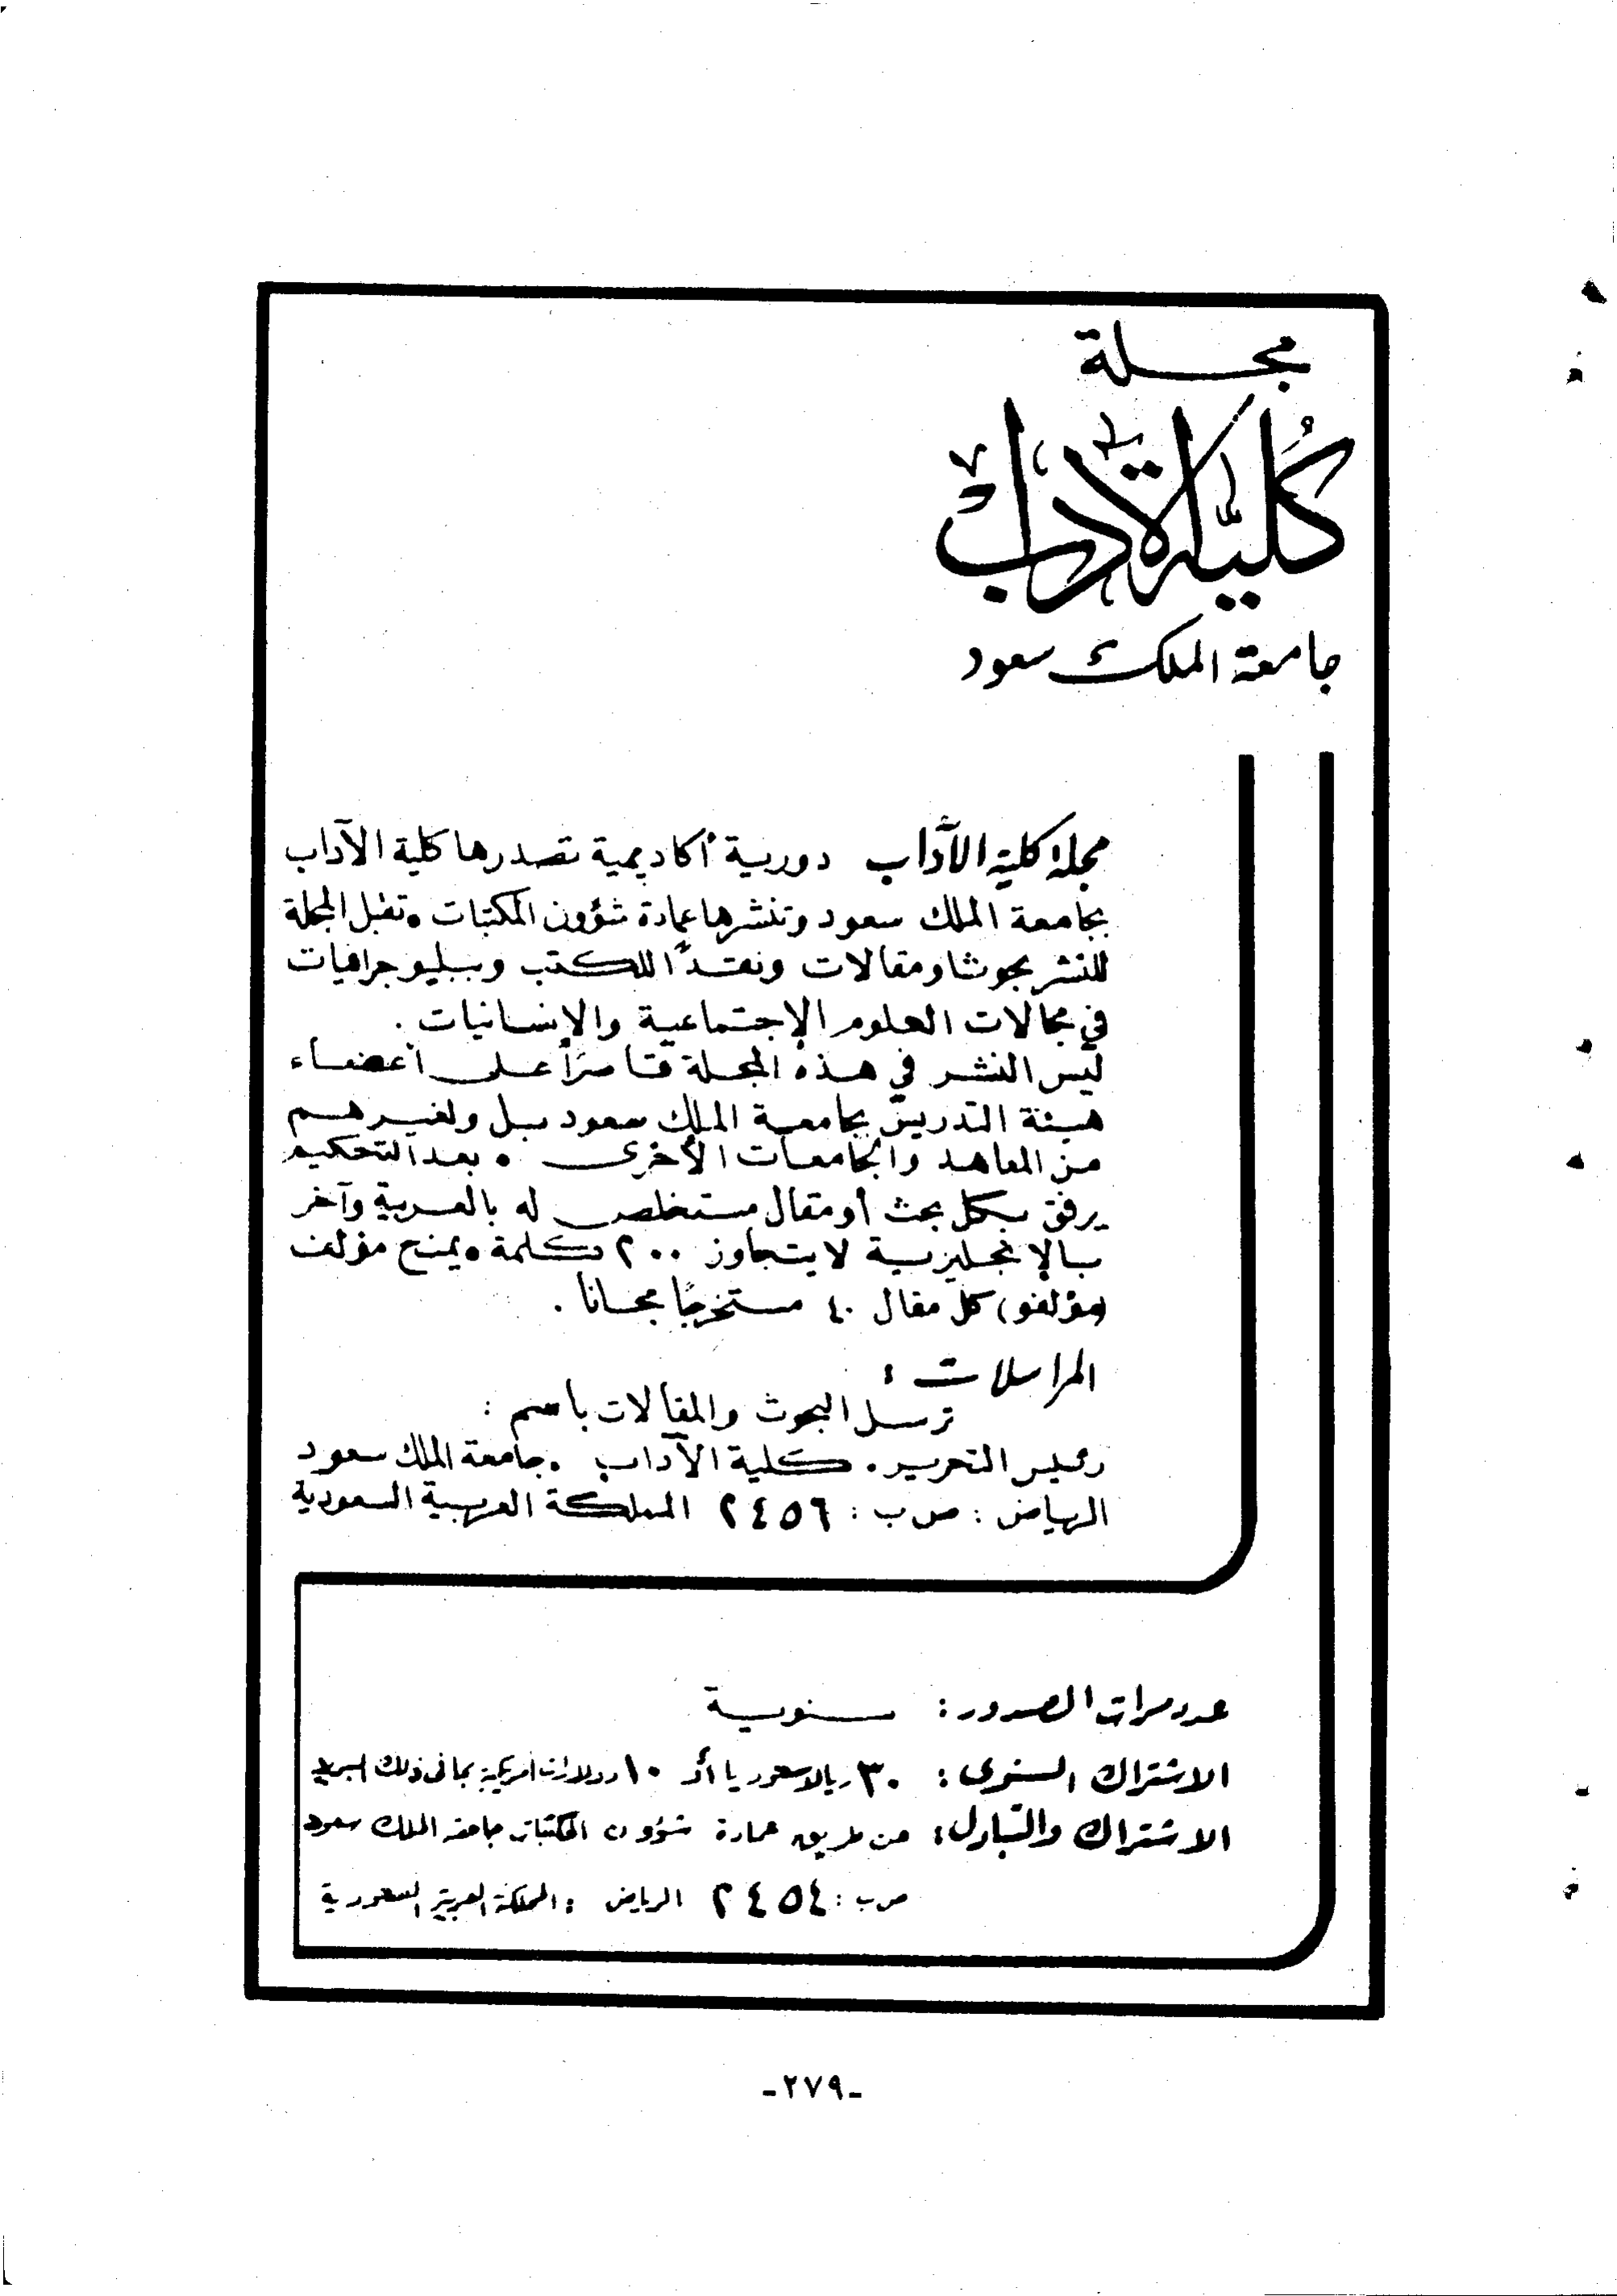 مجلة
كلية الآداب
جامعة الملك سعود
مجلة كلية الآداب دورية أكاديمية تصدرها كلية الآداب
بجامعة الملك سعود وتنشرها عمادة شؤون المكتبات . تقبل المجلة
للنشر بحوثا ومقالات ونقدًا للكتب وببليوجرافيات
في مجالات العلوم الإجتماعية والإنسانيات .
ليس النشر في هذه المجلة قاصرًا على أعضاء
هيئة التدريس بجامعة الملك سعود بل ولغيرهم
من المعاهد والجامعات الأخرى . بعد التحكيم
يرفق بكل بحث أو مقال مستخلص له بالعربية وآخر
بالإنجليزية لا يتجاوز ٢٠٠ كلمة . يمنح مؤلف
(مؤلفو) كل مقال ٤٠ مستخرجًا مجانا .
المراسلات :
ترسل البحوث والمقالات باسم :
رئيس التحرير . كلية الآداب . جامعة الملك سعود
الرياض : ص ب : ٢٤٥٦ المملكة العربية السعودية
عدد مرات الصدور : سنوية
الاشتراك السنوى : ٣٠ ريالا سعوديا أو ١٠ دولارات أمريكية بما في ذلك البريد
الاشتراك والتبادل : عن طريق عمادة شؤون المكتبات جامعة الملك سعود
ص ب : ٢٤٥٤ الرياض : المملكة العربية السعودية
-٢٧٩-